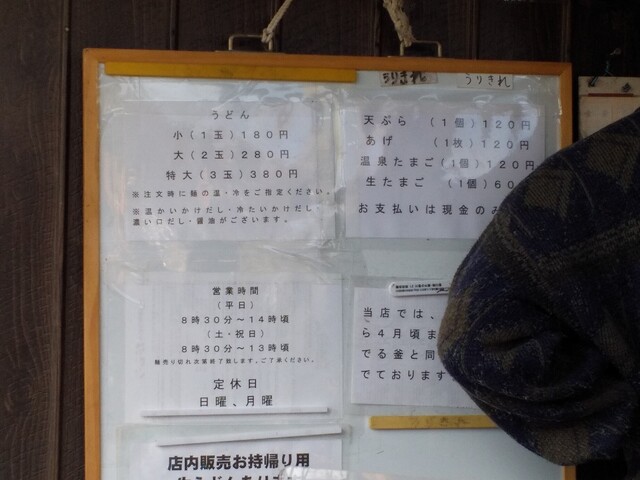 うりきれ
うりきれ
うどん
小(1玉)180円
大(2玉)280円
特大(3玉)380円
※注文時に麺の温・冷をご指定ください。
※温かいかけだし・冷たいかけだし
濃い口だし・醤油がございます。
天ぷら (1個)120円
あげ (1枚)120円
温泉たまご(1個)120円
生たまご (1個)60
お支払いは現金のみ
営業時間
(平日)
8時30分～14時頃
(土・祝日)
8時30分～13時頃
麺売り切れ次第終了致します。ご了承ください。
定休日
日曜、月曜
当店では、
ら4月頃ま
でる釜と同
でております
店内販売お持帰り用